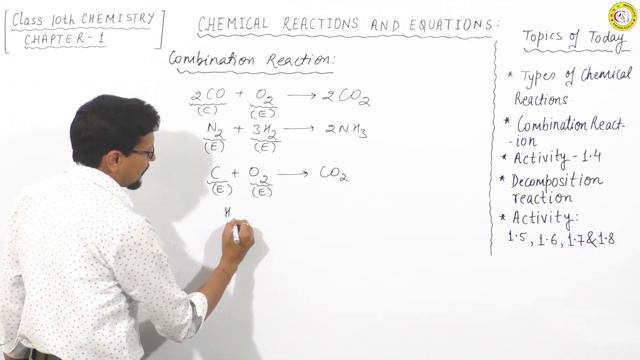 Class 10th CHEMISTRY
CHAPTER-1
CHEMICAL REACTIONS AND EQUATIONS:
Combination Reaction:
2CO + O2 → 2CO2
(C) (E)
N2 + 3H2 → 2NH3
(E) (E)
C + O2 → CO2
(E) (E)
H
Topics of Today
* Types of Chemical
Reactions
* Combination React-
-ion
* Activity-1.4
* Decomposition
reaction
* Activity:
1.5, 1.6, 1.7 & 1.8